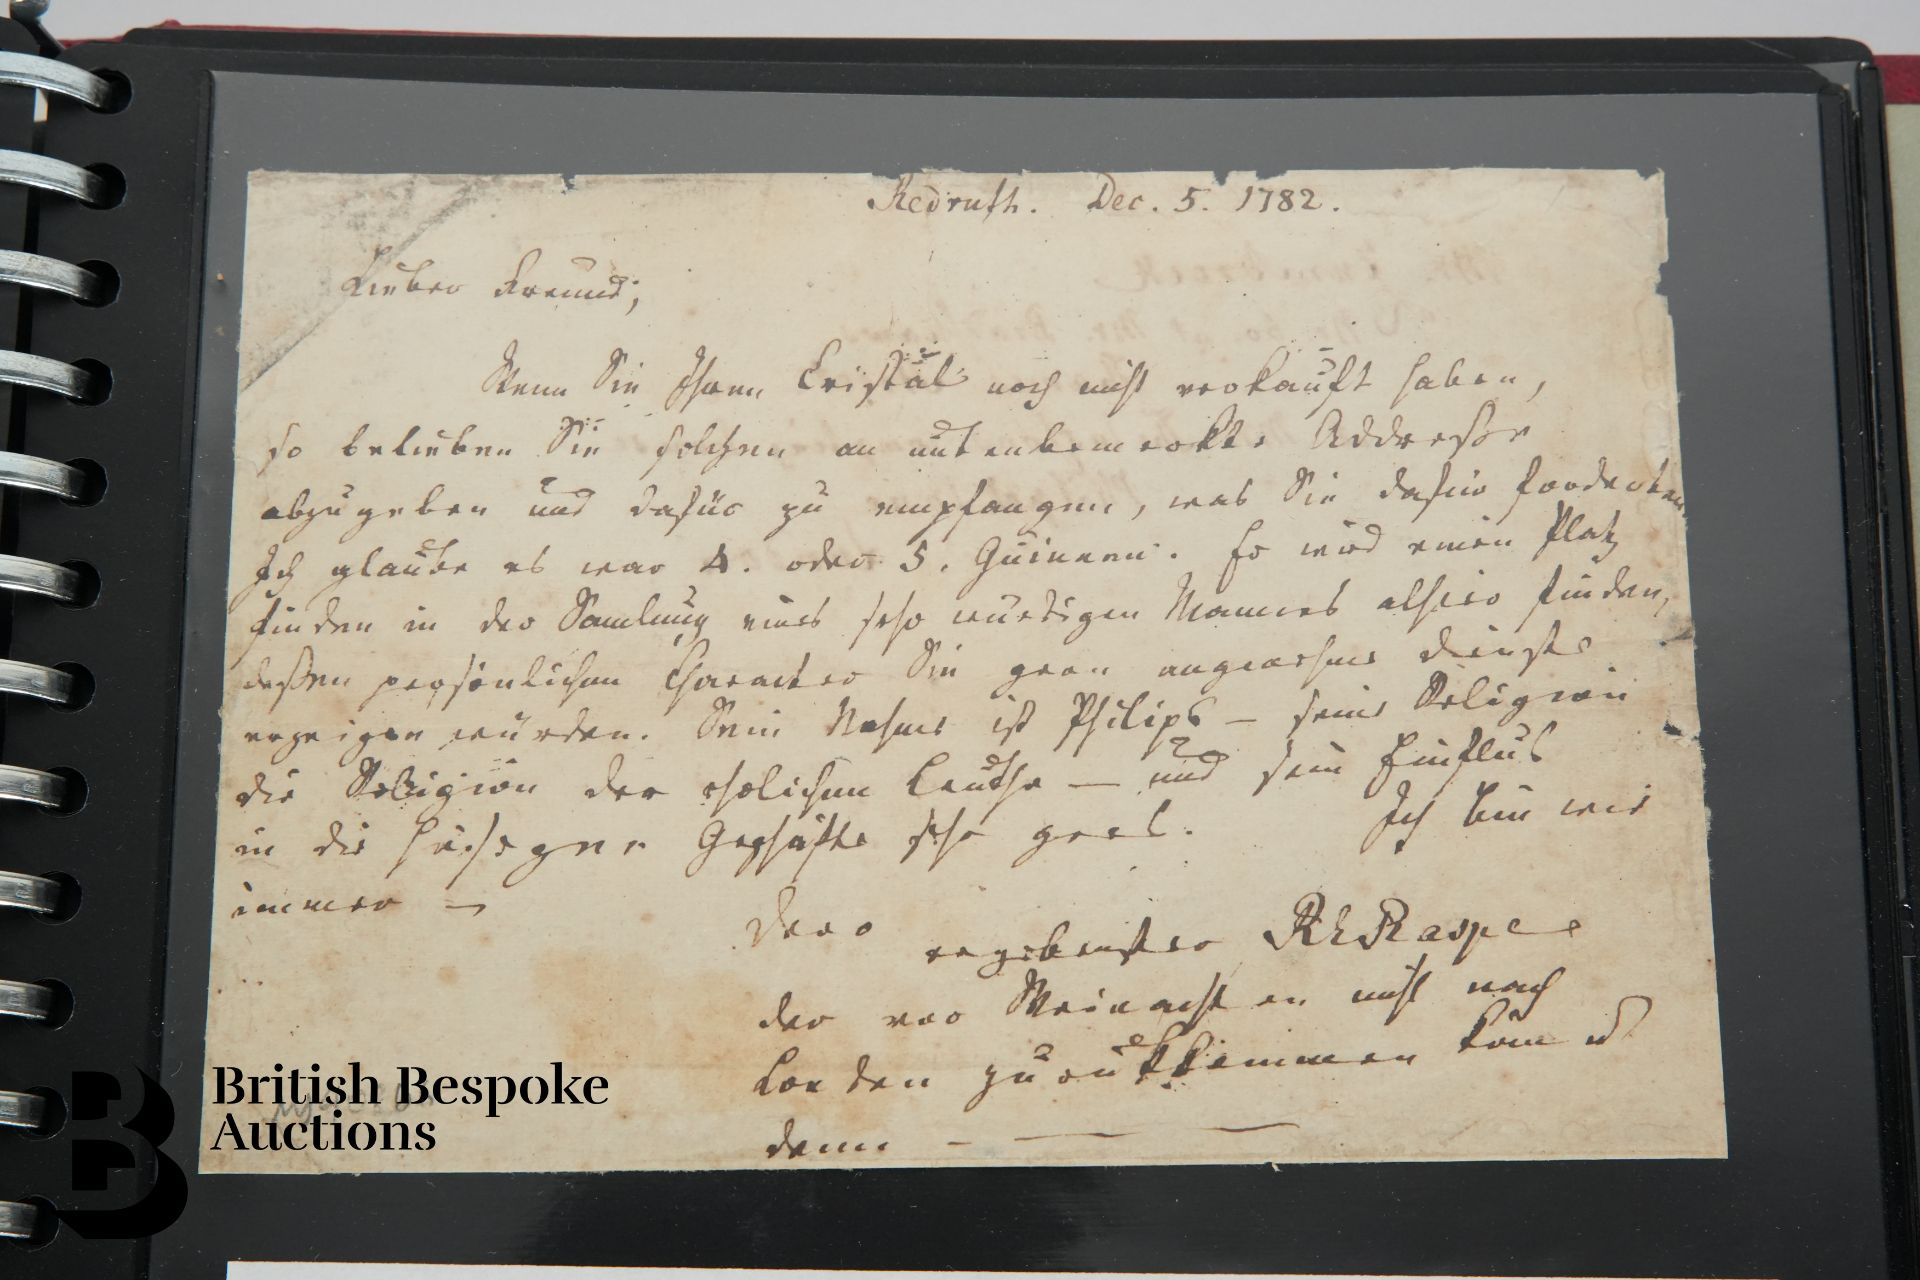 Redruth. Dec. 5. 1782.
Lieber Freund;
Wenn Sie Ihren Cristal noch nicht verkauft haben,
so belieben Sie solchen an untenbemerkte Addresse
abzugeben und dafür zu empfangen, was Sie dafür forderten
Ich glaube es war 4. oder 5. Guineen. Er wird einen Platz
finden in der Samlung eines sehr würdigen Mannes
deßen persönlichen Character Sie gern angenehme Dienste
erzeigen würden. Sein Nahme ist Philips – seine Religion
die Religion der ehrlichen Leuthe — und sein Einflus
in die hiesigen Geschäfte sehr gros. Ich bin wie
immer –
Dero
ergebenster RERaspe
der vor Weinachten nicht nach
London zurükkommen
denn – — —
British Bespoke
Auctions